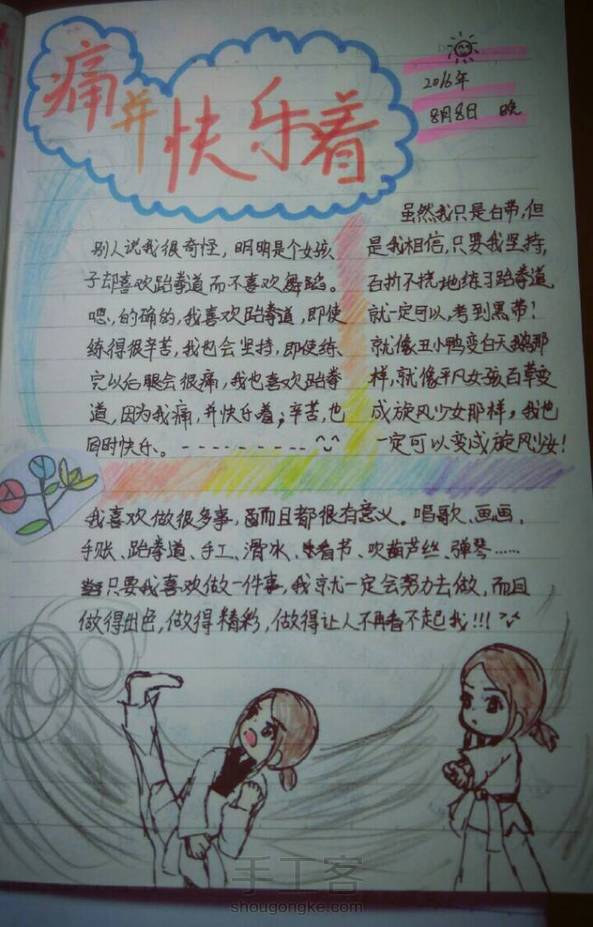 痛并快乐着
2016年
8月8日 晚
别人说我很奇怪，明明是个女孩
子却喜欢跆拳道而不喜欢舞蹈。
嗯，的确的，我喜欢跆拳道，即使
练得很辛苦，我也会坚持，即使练
完以后腿会很痛，我也喜欢跆拳
道，因为我痛，并快乐着；辛苦，也
同时快乐。
虽然我只是白带，但
是我相信，只要我坚持，
百折不挠地练习跆拳道，
就一定可以，考到黑带！
就像丑小鸭变白天鹅那
样，就像平凡女孩百草变
成旋风少女那样，我也
一定可以变成旋风少女！
我喜欢做很多事，而且都很有意义。唱歌、画画、
手账、跆拳道、手工、滑冰、看书、吹葫芦丝、弹琴……
只要我喜欢做一件事，我就一定会努力去做，而且
做得出色，做得精彩，做得让人不再看不起我！！！
手工客
shougongke.com